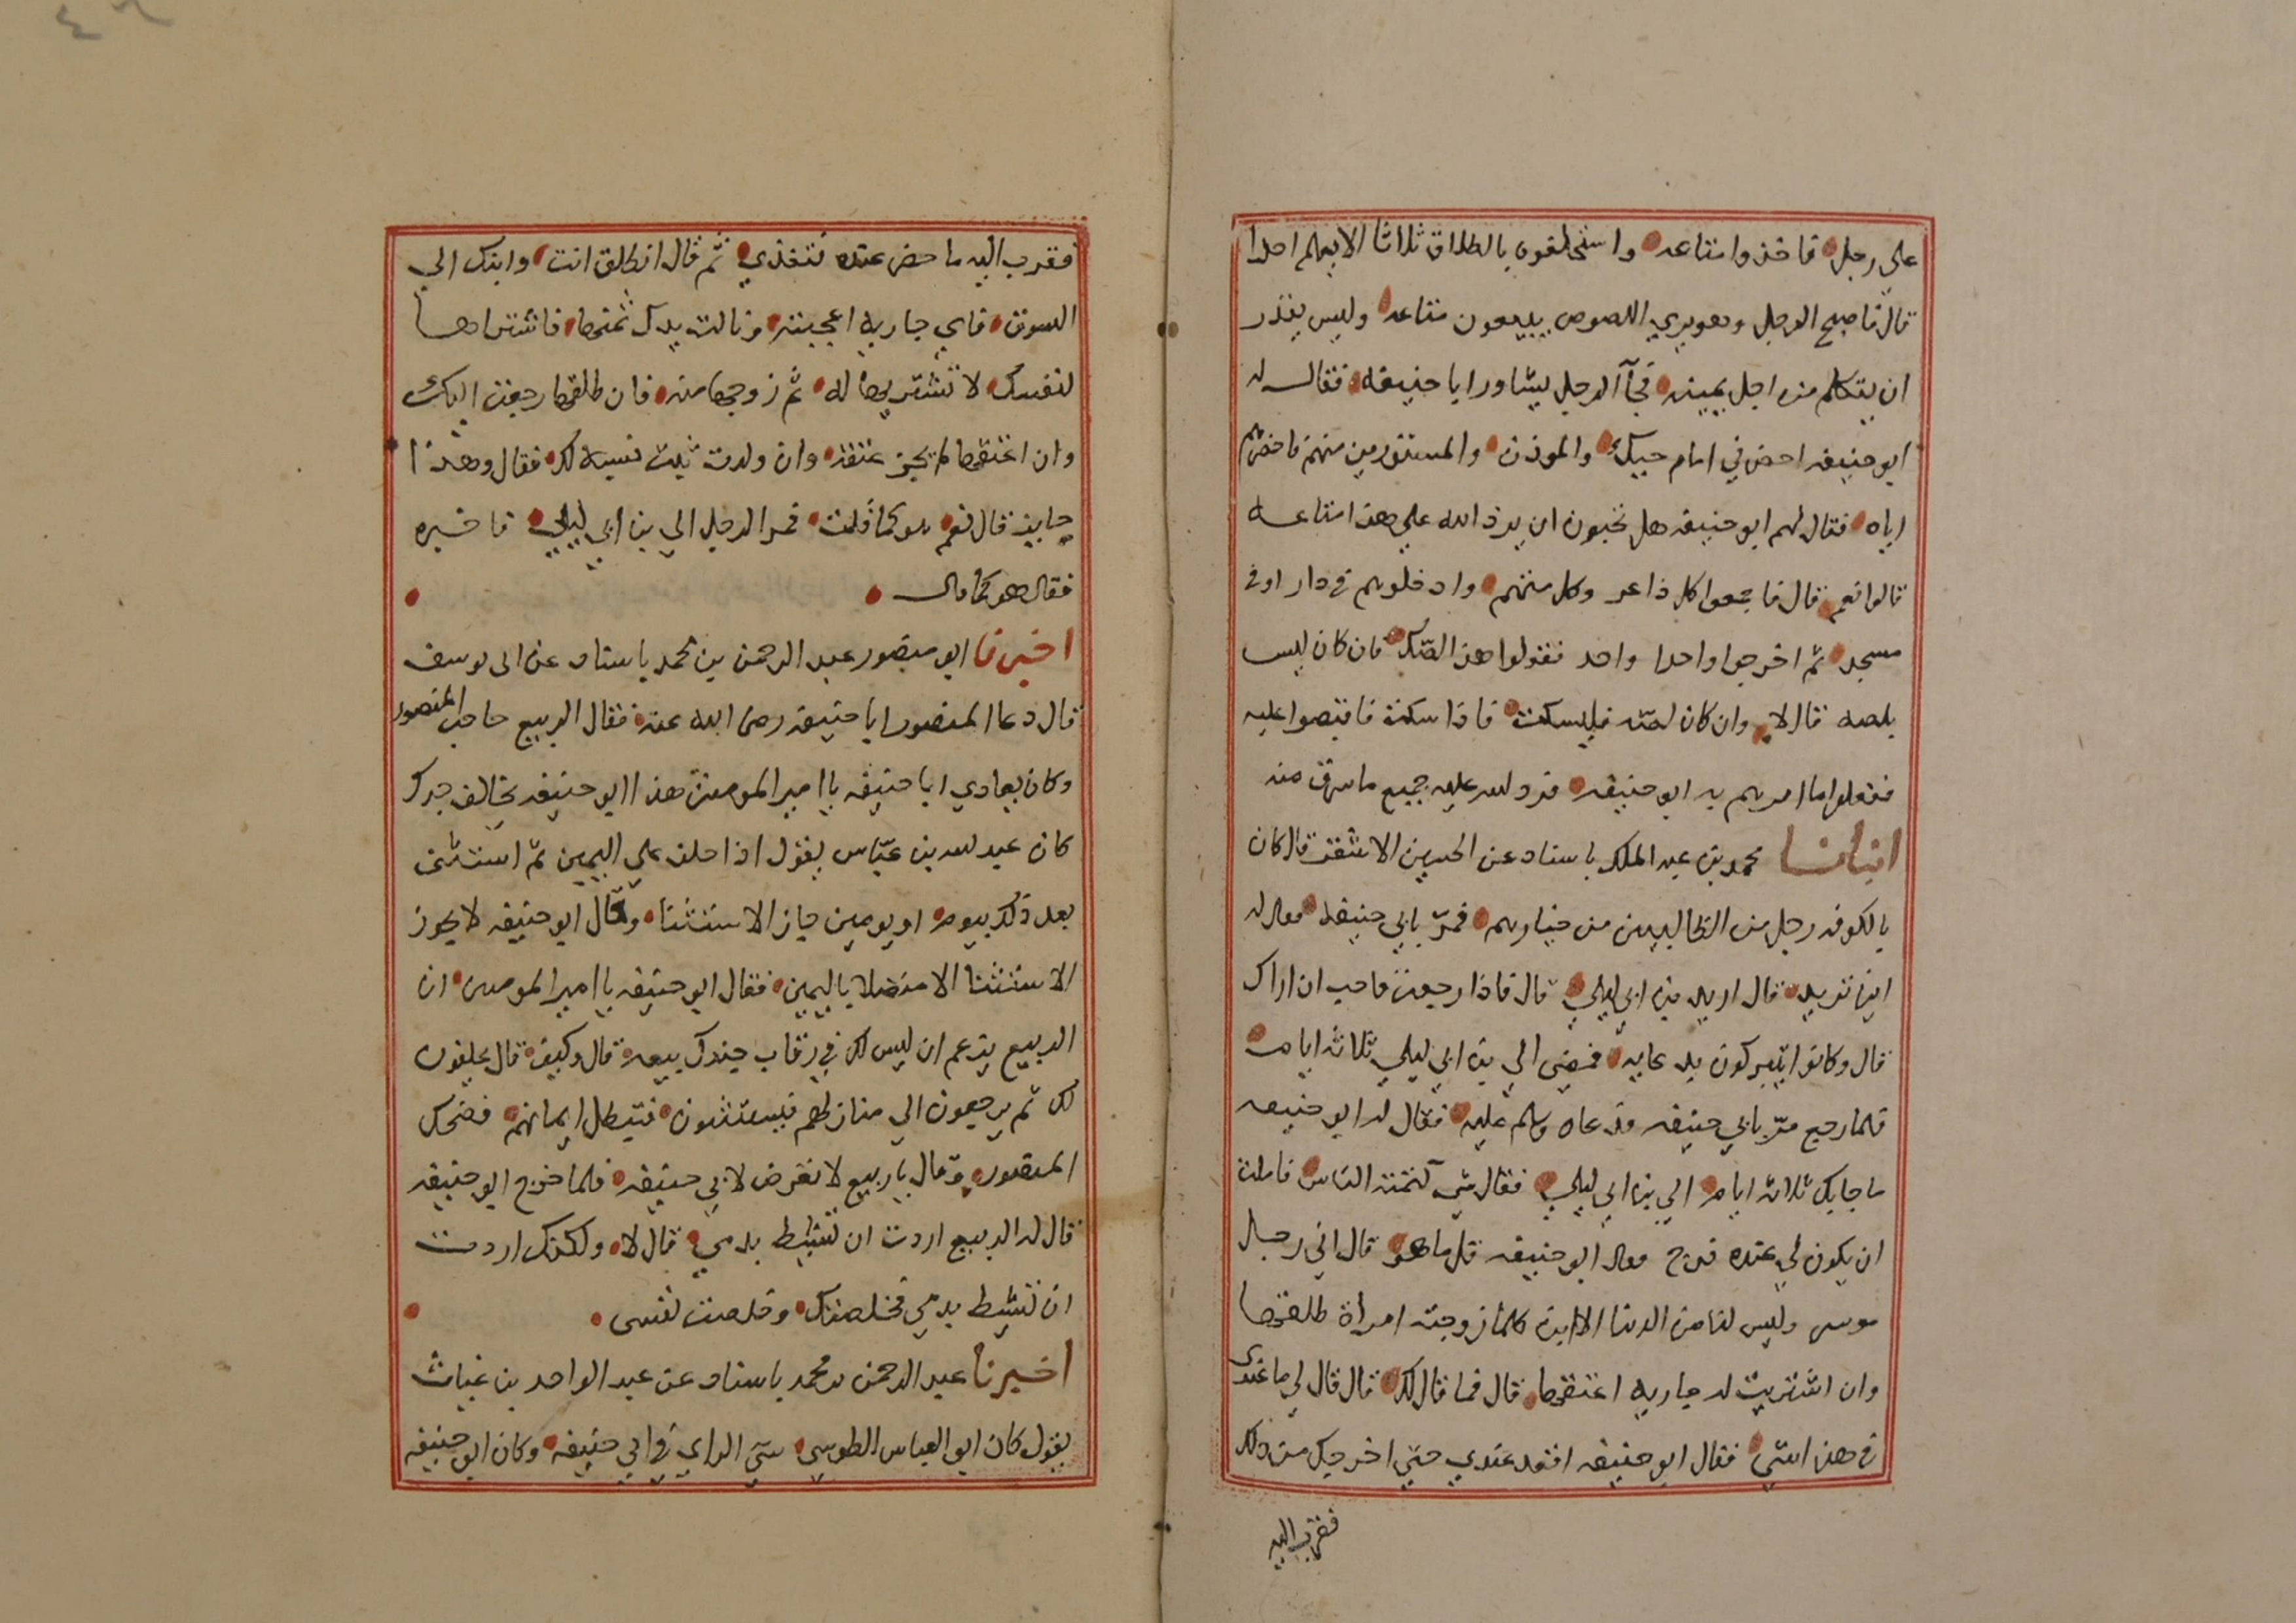 على رجل فاخذوا متاعه واستحلفوه بالطلاق ثلاثا الا يعلم احدا
قال فاصبح الرجل وهو يري اللصوص يبيعون متاعه وليس يقدر
ان يتكلم من اجل يمينه فجآ الرجل ليشاور ابا حنيفه فقال له
ابو حنيفه احضرني امام حيك والموذن والمستورين منهم فاحضرهم
اياه فقال لهم ابو حنيفه هل تحبون ان يرد الله علي هذا متاعه
قالوا نعم قال فاجمعوا كل ذاعر وكل متهم وادخلوهم في دار او في
مسجد ثم اخرجوا واحدا واحد فقولوا هذا لصّك فان كان ليس
بلصه قال لا وان كان لصّه فليسكت فاذا سكت فاقبضوا عليه
ففعلوا ما امرهم به ابو حنيفه فرد الله عليه جميع ما سرق منه
انبانا محمد بن عبد الملك باسناد عن الحسين الاشقر قال كان
بالكوفه رجل من الطالبيين من خيارهم فمرّ بابي حنيفه فقال له
اين تريد قال اريد بن ابي ليلي قال فاذا رجعت فاحب ان اراك
قال وكانوا يتبركون بدعايه فمضى الي بن ابي ليلي ثلاثه ايام
فلما رجع مرّ بابي حنيفه فدعاه وسلم عليه فقال له ابو حنيفه
ما جابك ثلاثه ايام الي بن ابي ليلي فقال شي كتمته الناس فاملت
ان يكون لي عنده فرج فقال ابو حنيفه قل ما هو قال اني رجل
موسر وليس لنا من الدنيا الا ابن كلما زوجته امراة طلقها
وان اشتريت له جاريه اعتقها قال فما قال لك قال قال لي ما عندي
في هذا شي فقال ابو حنيفه اقعد عندي حتي اخرجك من ذلك
فقرب اليه
فقرب اليه ما حضر عنده فتغذي ثم قال انطلق انت وابنك الي
السوق فاي جاريه اعجبته ونالت يدك ثمنها فاشترها
لنفسك لا تشتريها له ثم زوجها منه فان طلقها رجعت اليك
وان اعتقها لم يجز عتقه وان ولدت ثبت نسبه لك فقال وهذا
جايز قال نعم هو كما قلت فمر الرجل الي بن ابي ليلي فاخبره
فقال هو كما قال
اخبرنا ابو منصور عبد الرحمن بن محمد باسناد عن ابي يوسف
قال دعا المنصور ابا حنيفه رضى الله عنه فقال الربيع حاجب المنصور
وكان يعادي ابا حنيفه يا امير المومنين هذا ابو حنيفه يخالف جدك
كان عبد الله بن عبّاس يقول اذا حلف علي اليمين ثم استثنى
بعد ذلك بيوم او يومين جاز الاستثنا وقال ابو حنيفه لا يجوز
الاستثنا الا متصلا باليمين فقال ابو حنيفه يا امير المومنين ان
الربيع يزعم ان ليس لك في رقاب جندك بيعه قال وكيف قال يحلفون
لك ثم يرجعون الي منازلهم فيستثنون فتبطل ايمانهم فضحك
المنصور وقال يا ربيع لا تعرض لابي حنيفه فلما خرج ابو حنيفه
قال له الربيع اردت ان تشيط بدمي قال لا ولكنك اردت
ان تشيط بدمي فخلصتك وخلصت نفسى
اخبرنا عبد الرحمن بن محمد باسناد عن عبد الواحد بن غياث
يقول كان ابو العباس الطوسي سيّ الراي في ابي حنيفه وكان ابو حنيفه